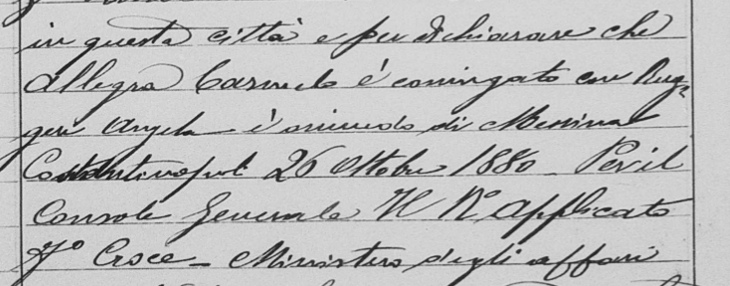 in questa città e per dichiarare che
Allegra Carmelo è coniugato con Rug-
geri Angela è oriundo di Messina
Costantinopoli 26 Ottobre 1880 _ Per il
Console Generale Il R° Applicato
F° Croce _ Ministero degli affari